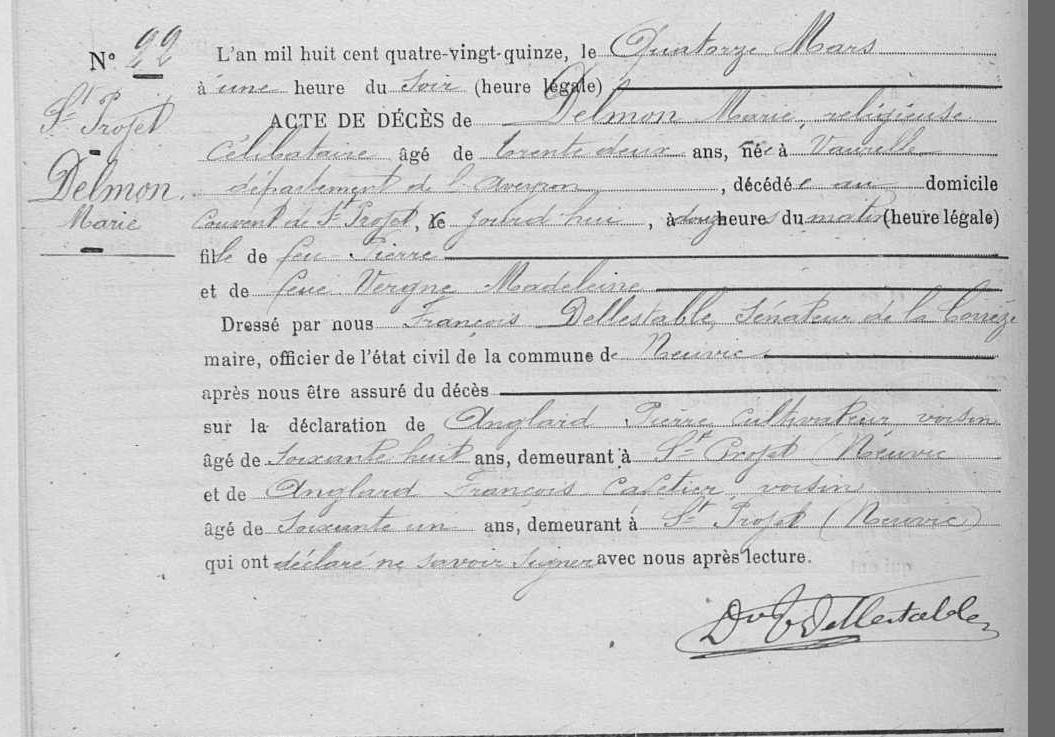 N° 22
St Projet
Delmon
Marie
L'an mil huit cent quatre-vingt-quinze, le Quatorze Mars
à une heure du soir (heure légale)
ACTE DE DÉCÈS de Delmon Marie, religieuse
célibataire âgé de trente deux ans, née à Vaurelle
département de l'aveyron, décédée au domicile
couvent de St Projet, ce jourd'hui, à heures du matin (heure légale)
fille de feu Pierre
et de feue Vergne Madeleine
Dressé par nous François Dellestable, Sénateur de la Corrèze
maire, officier de l'état civil de la commune de Neuvic
après nous être assuré du décès
sur la déclaration de Anglard Pierre cultivateur voisin
âgé de soixante huit ans, demeurant à St Projet (Neuvic
et de Anglard François cafetier voisin
âgé de soixante un ans, demeurant à St Projet (Neuvic)
qui ont déclaré ne savoir signer avec nous après lecture.
Dr F Dellestable